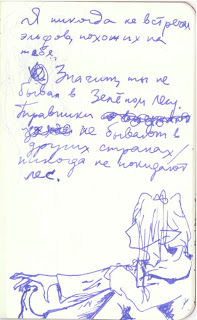 Я никогда не встречал
эльфов, похожих на
тебя.
Значит, ты не
бывал в Зелёном лесу.
Травники
не бывают в
других странах/
никогда не покидают
лес.